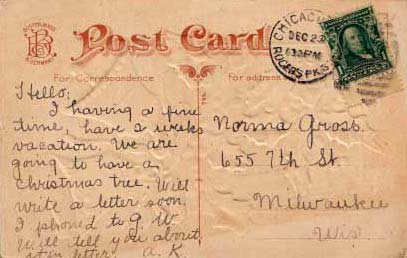 Post Card
CHICAGO
DEC 23
630 PM
ROGERS PK.S
For Correspondence
For address
Hello:
I having a fine
time, have a weeks
vacation. We are
going to have a
christmas tree. Will
write a letter soon.
I phoned to G. W.
Will tell you about
it in letter. A. K.
Norma Gross.
655 7th St.
Milwaukee
Wis.